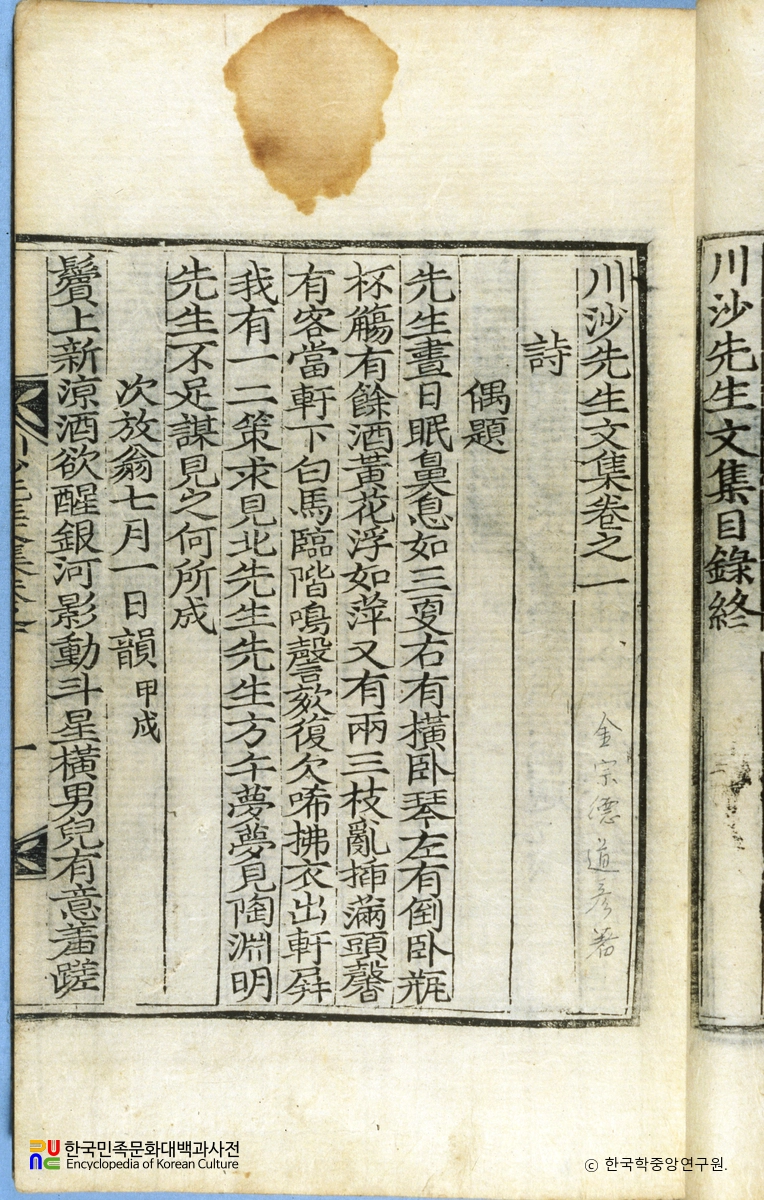 川沙先生文集目錄終
川沙先生文集卷之一
金宗德道彦著
詩
偶題
先生晝日眠鼻息如三更右有橫卧琴左有倒卧甁
杯觴有餘酒黃花浮如萍又有兩三枝亂揷滿頭馨
有客當軒下白馬臨階鳴謦欬復欠唏拂衣出軒屛
我有一二策求見北先生先生方午夢夢見陶淵明
先生不足謀見之何所成
次放翁七月一日韻 甲戌
鬢上新凉酒欲醒銀河影動斗星橫男兒有意羞蹉
한국민족문화대백과사전
Encyclopedia of Korean Culture
ⓒ 한국학중앙연구원.